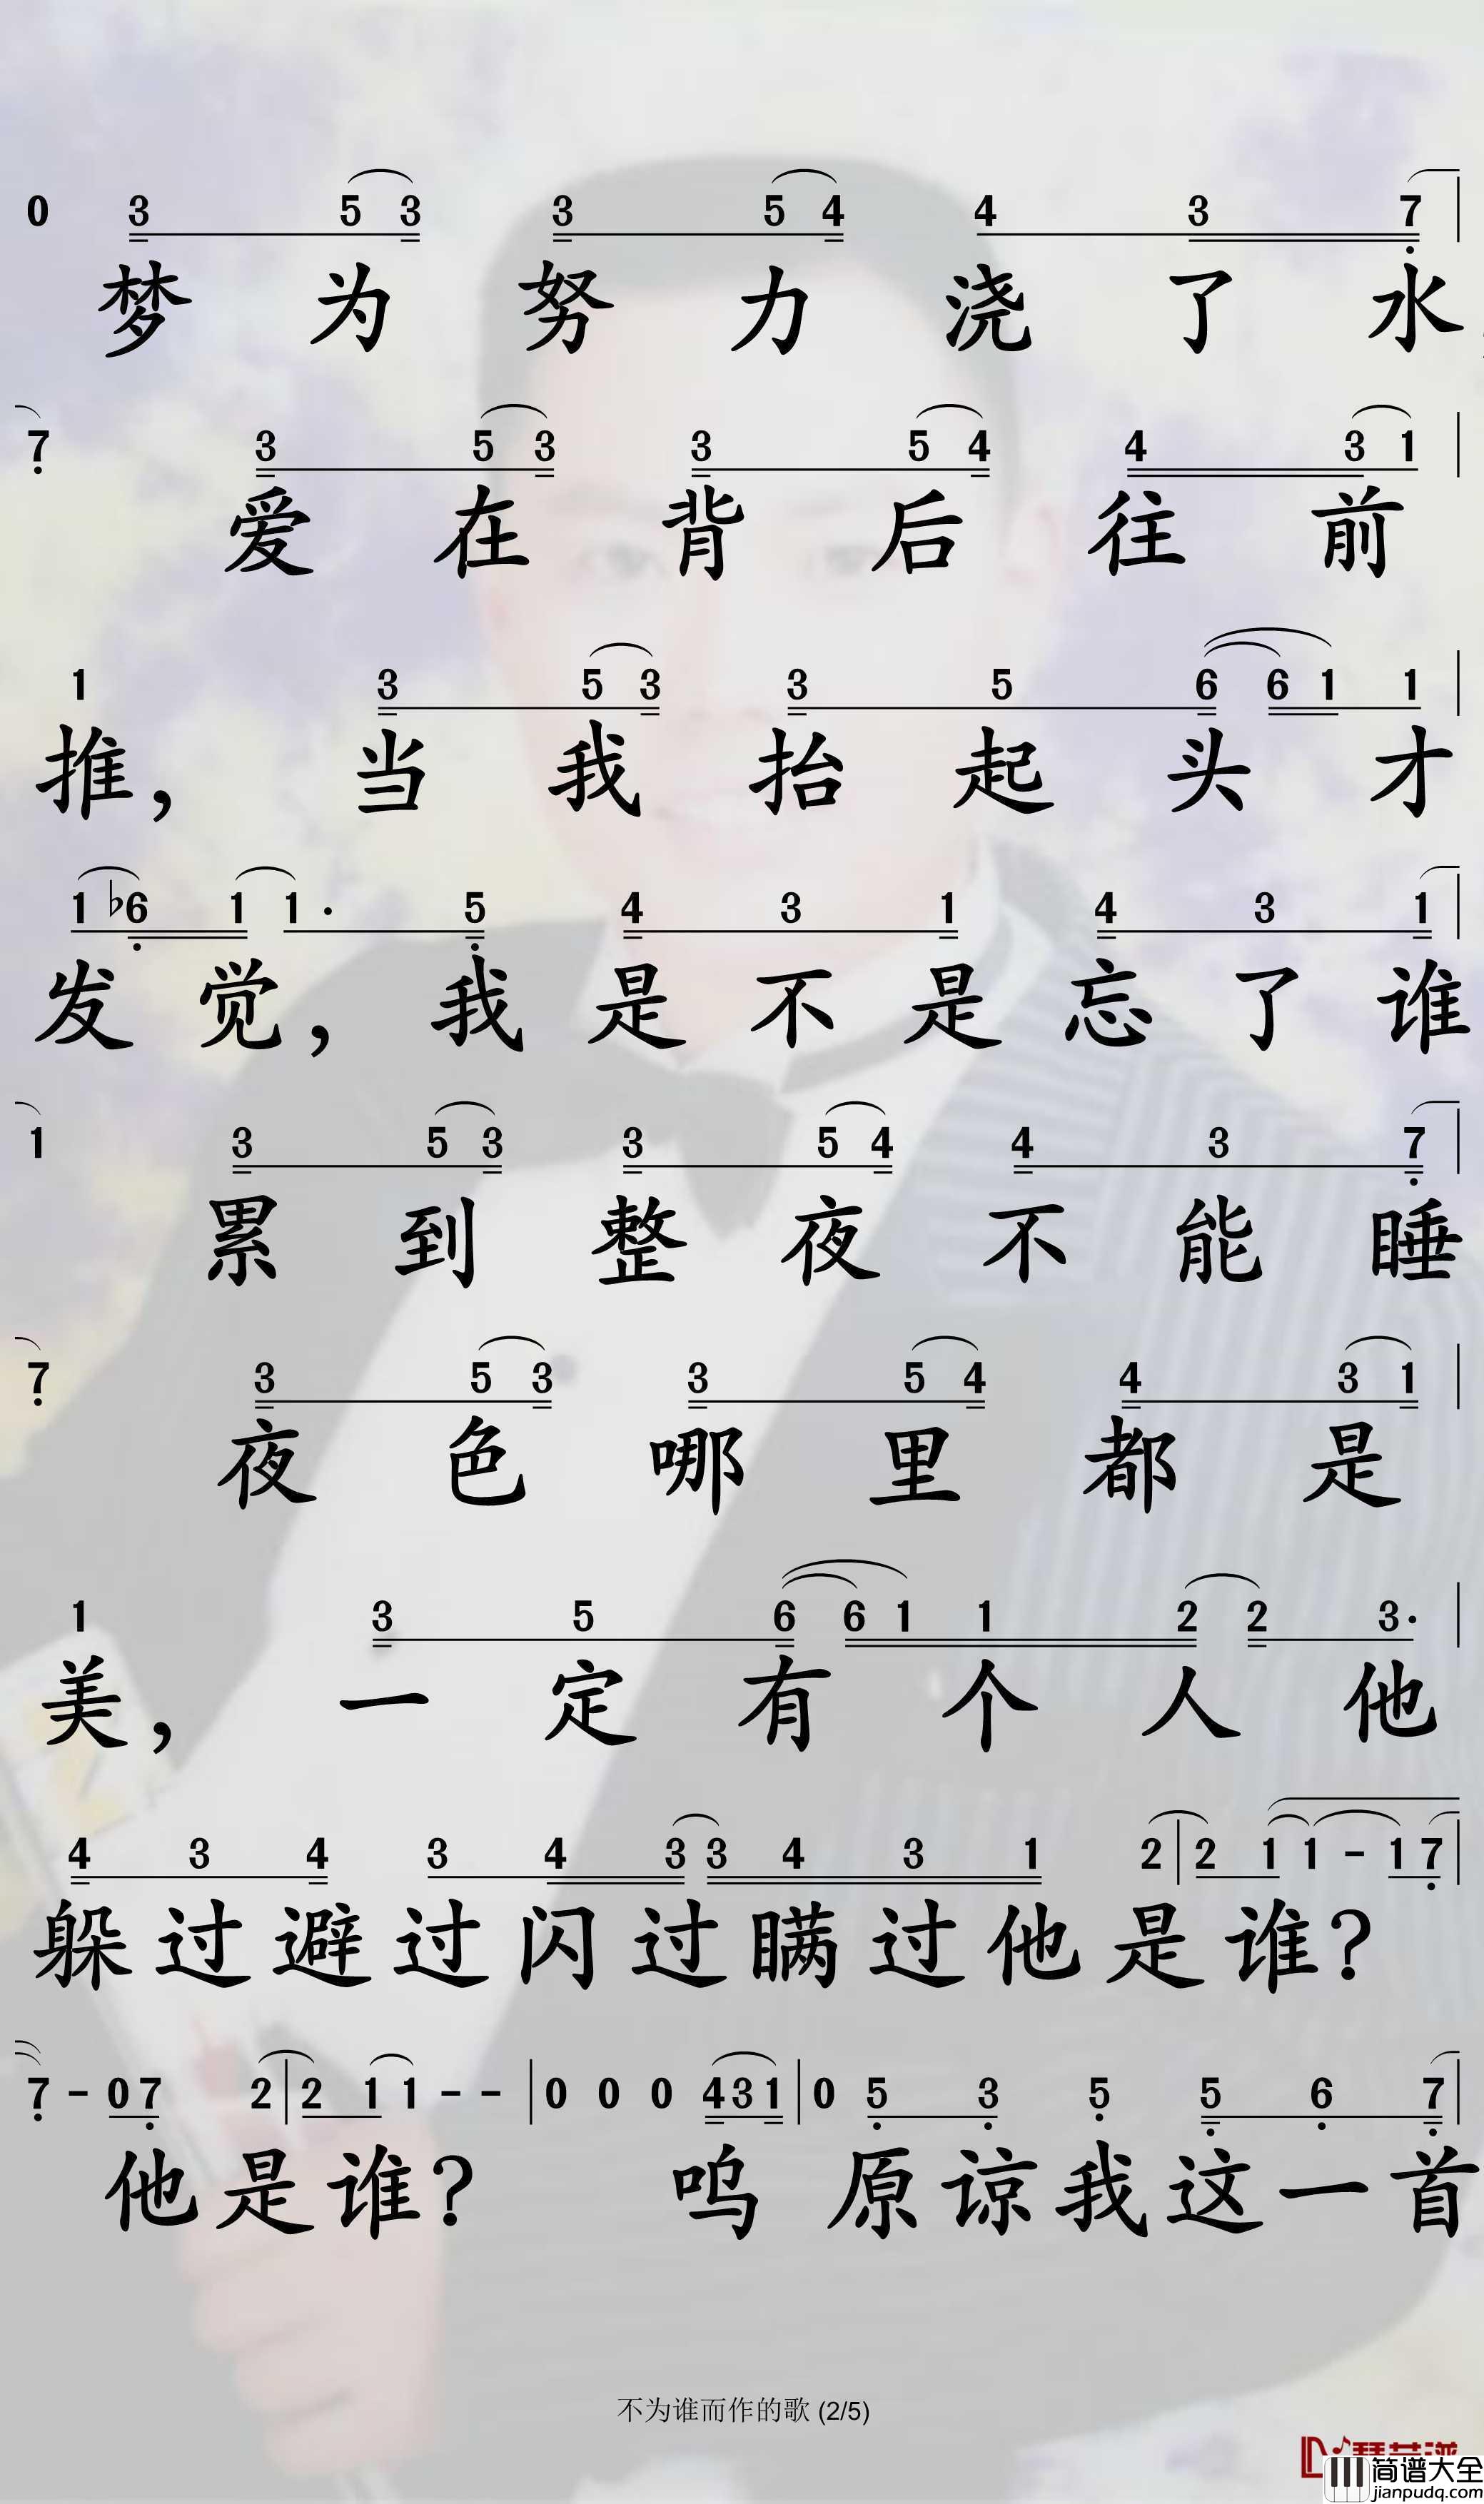 0 3 5 3 3 5 4 4 3 7
梦为努力浇了水
7 3 5 3 3 5 4 4 3 1
爱在背后往前
1 3 5 3 3 5 6 6 1 1
推，当我抬起头才
1 ♭6 1 1· 5 4 3 1 4 3 1
发觉，我是不是忘了谁
1 3 5 3 3 5 4 4 3 7
累到整夜不能睡
7 3 5 3 3 5 4 4 3 1
夜色哪里都是
1 3 5 6 6 1 1 2 2 3·
美，一定有个人他
4 3 4 3 4 3 3 4 3 1 2 | 2 1 1 - 1 7
躲过避过闪过瞒过他是谁？
7 - 0 7 2 | 2 1 1 - - | 0 0 0 4 3 1 | 0 5 3 5 5 6 7
他是谁？ 呜 原谅我这一首
不为谁而作的歌 (2/5)
简谱大全
jianpudq.com